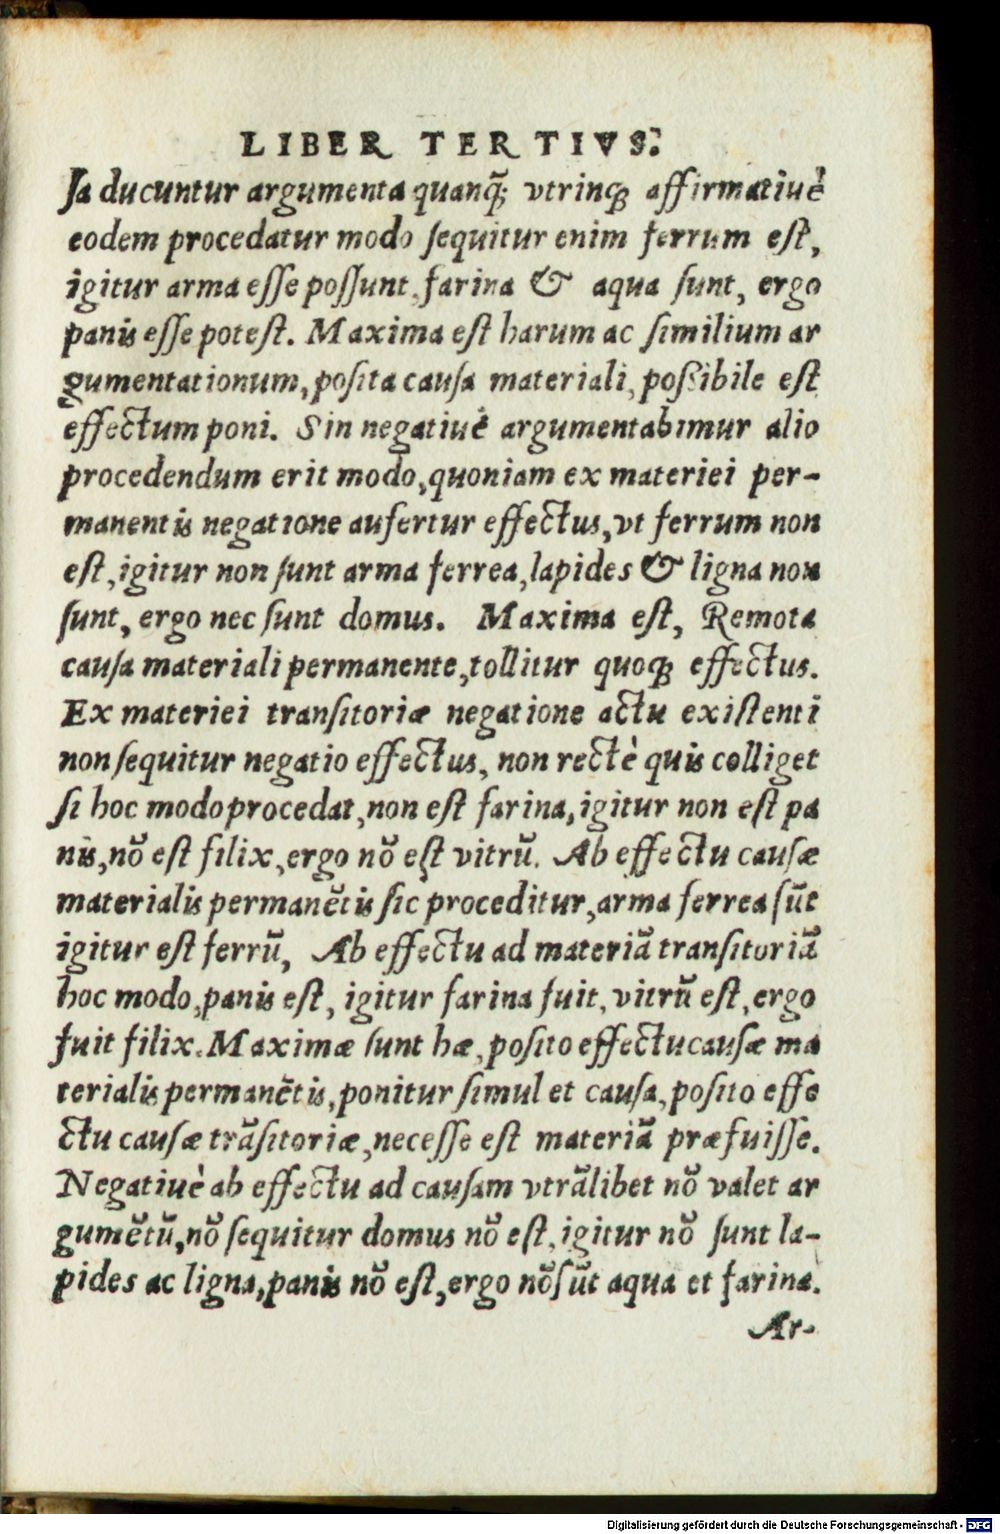 LIBER TERTIVS.
ſa ducuntur argumenta quanq̃; vtrinq; affirmatiuè
eodem procedatur modo ſequitur enim ferrum eſt,
igitur arma eſſe poſſunt, farina & aqua ſunt, ergo
panis eſſe poteſt. Maxima eſt harum ac ſimilium ar
gumentationum, poſita cauſa materiali, poſsibile eſt
effectum poni. Sin negatiuè argumentabimur alio
procedendum erit modo, quoniam ex materiei per-
manentis negatione aufertur effectus, vt ferrum non
eſt, igitur non ſunt arma ferrea, lapides & ligna non
ſunt, ergo nec ſunt domus. Maxima eſt, Remota
cauſa materiali permanente, tollitur quoq; effectus.
Ex materiei tranſitoriæ negatione actu exiſtenti
non ſequitur negatio effectus, non rectè quis colliget
ſi hoc modo procedat, non eſt farina, igitur non eſt pa
nis, nõ eſt filix, ergo nõ eſt vitrũ. Ab effectu cauſæ
materialis permanẽtis ſic proceditur, arma ferrea ſũt
igitur eſt ferrũ, Ab effectu ad materiã tranſitoriã
hoc modo, panis eſt, igitur farina fuit, vitrũ eſt, ergo
fuit filix. Maximæ ſunt hæ, poſito effectu cauſæ ma
terialis permanẽtis, ponitur ſimul et cauſa, poſito effe
ctu cauſæ trãſitoriæ, neceſſe eſt materiã præfuiſſe.
Negatiuè ab effectu ad cauſam vtrãlibet nõ valet ar
gumẽtũ, nõ ſequitur domus nõ eſt, igitur nõ ſunt la-
pides ac ligna, panis nõ eſt, ergo nõ ſũt aqua et farina.
Ar-
Digitalisierung gefördert durch die Deutsche Forschungsgemeinschaft - DFG